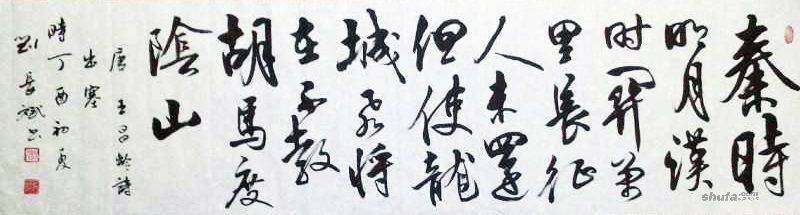 秦時
明月漢
时関萬
里長征
人未還
但使龍
城飛將
在不教
胡馬度
陰山
唐王昌齡詩
出塞
時丁酉初夏
劉長斌书